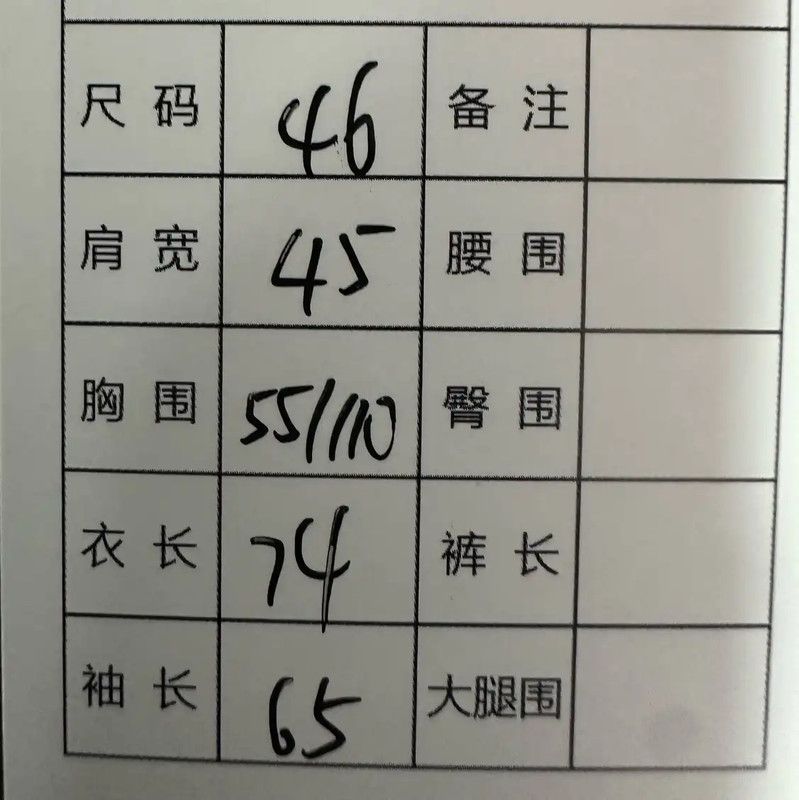 尺码 46 备注
肩宽 45 腰围
胸围 55/110 臀围
衣长 74 裤长
袖长 65 大腿围